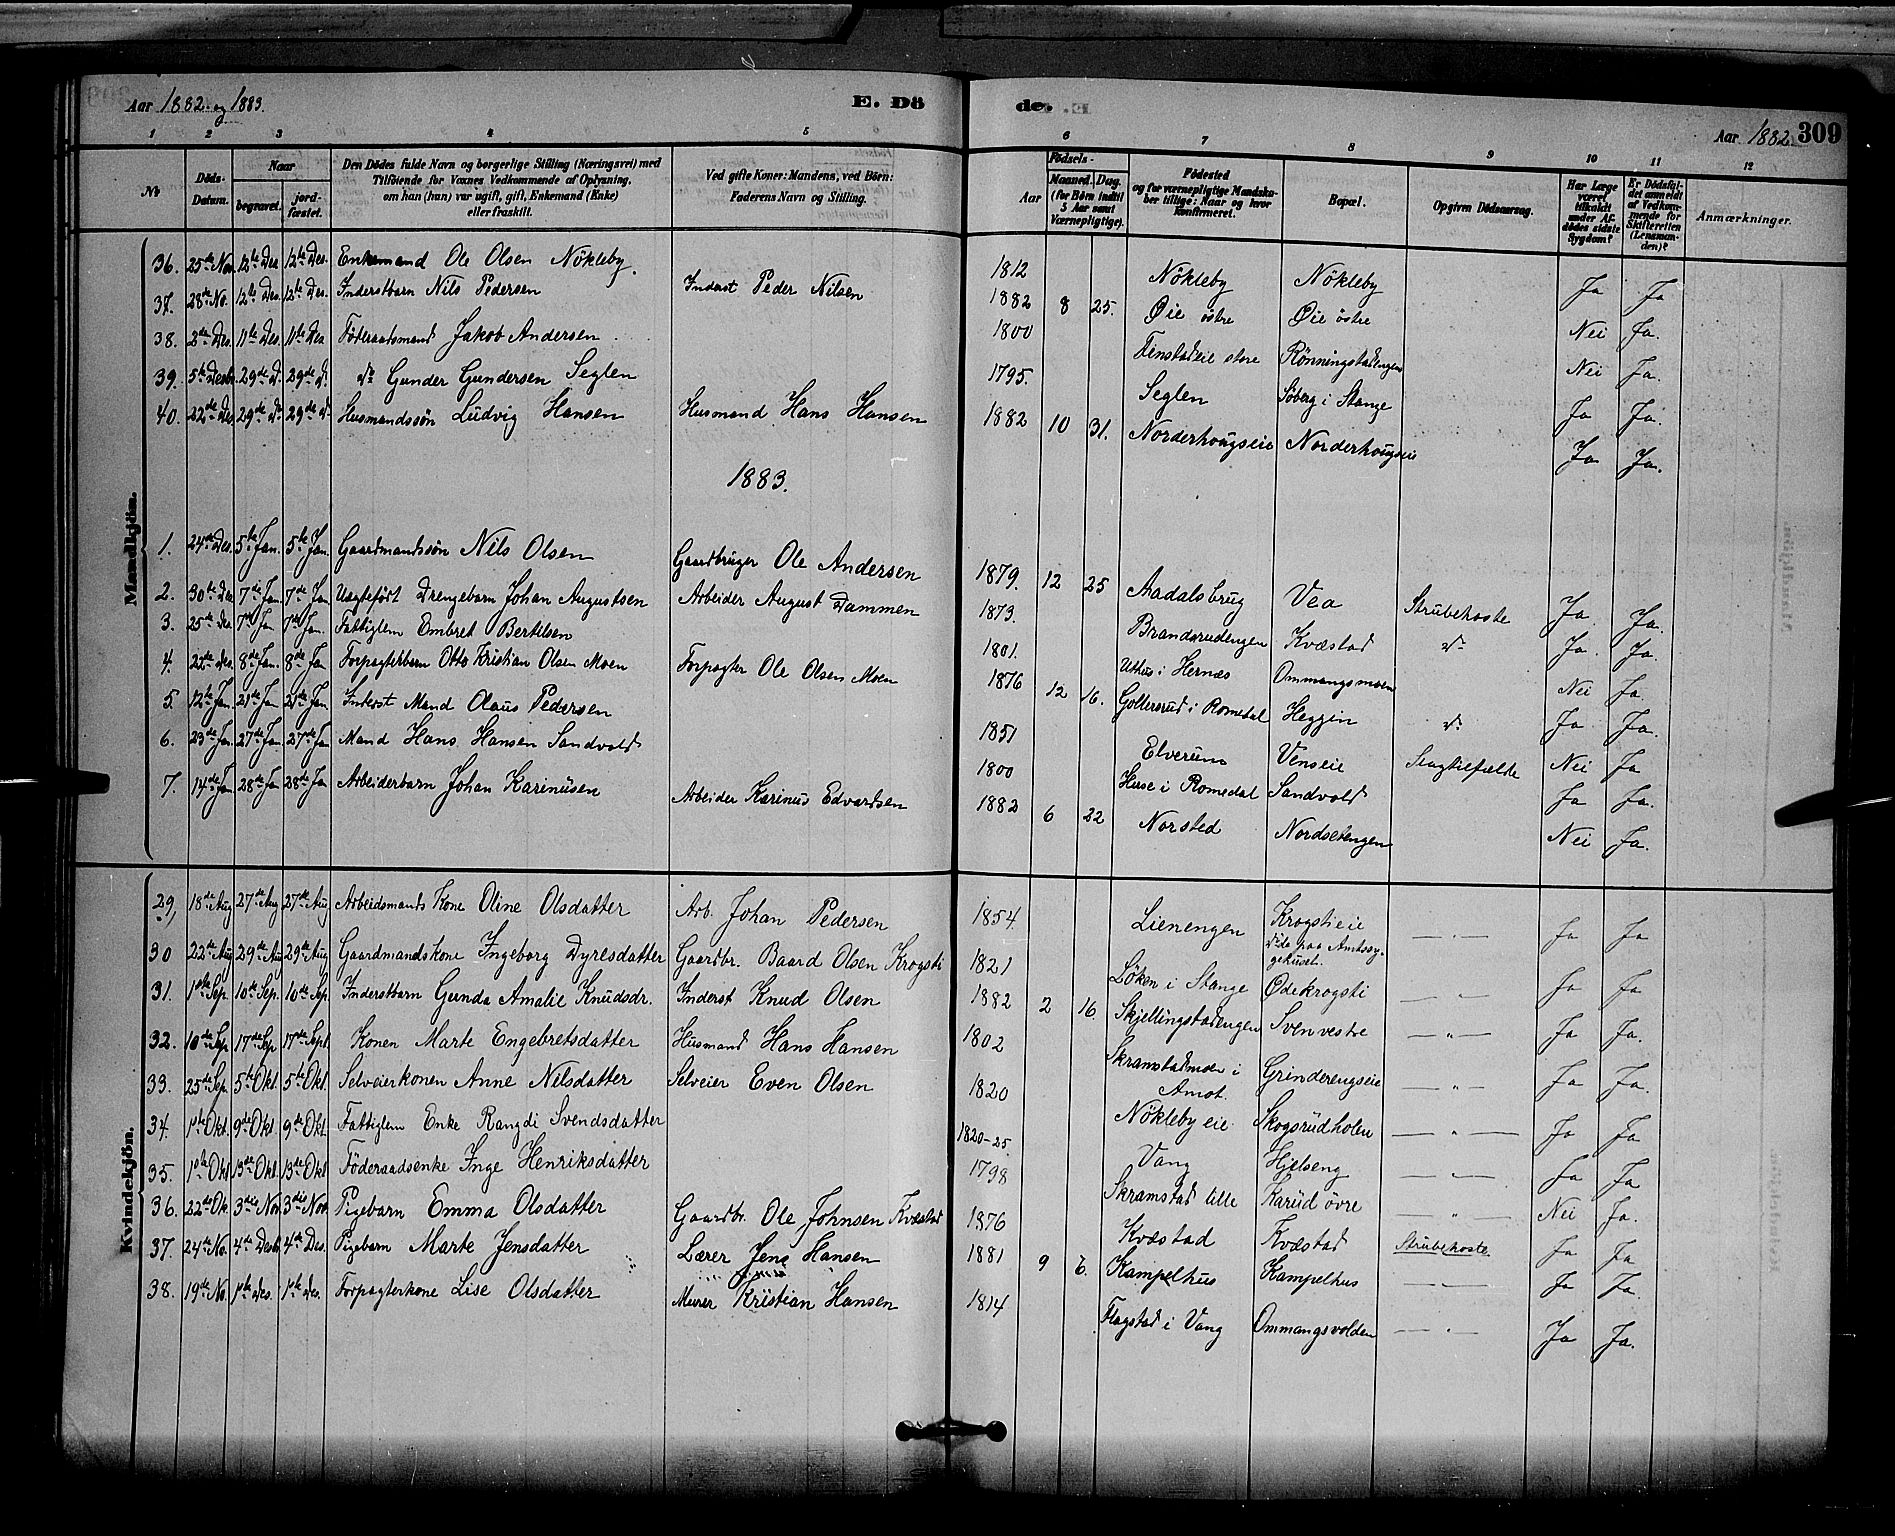 Aar 1882 og 1883.
E. Dö
de.
Aar 1882
309
1 2 3 4 5 6 7 8 9 10 11 12
No
Döds-Datum.
Naar
begravet.
jord-fæstet.
Den Dödes fulde Navn og borgerlige Stilling (Næringsvei) med
Tilföiende for Voxnes Vedkommende af Oplysning,
om han (hun) var ugift, gift, Enkemand (Enke)
eller fraskilt.
Ved gifte Koner: Mandens, ved Börn:
Faderens Navn og Stilling.
Födsels-
Aar
Maaned. Dag.
(for Börn indtil
5 Aar samt
Værnepligtige).
Födested
og for værnepligtige Mandskaber
tillige: Naar og hvor
konfirmeret.
Bopæl.
Opgiven Dödsaarsag.
Har Læge
været
tilkaldt
under Afdödes sidste
Sygdom?
Er Dödsfaldet anmeldt
af Vedkommende for
Skifteretten
(Lensmanden)?
Anmærkninger.
Mandkjön.
36. 25de Nov. 12te Des. 12te Des. Enkemand Ole Olsen Nökleby. 1812 Nökleby Nökleby Ja Ja
37. 28de No. 12te Des. 12te Des. Inderstbarn Nils Pedersen Inderst Peder Nilsen 1882 8 25. Øie östre Øie östre Nei Ja.
38. 2de Des. 11te Des. 11te Des Föderaadsmand Jakob Andersen 1800 Finstadeie store Rönningstadengen Nei Ja.
39. 5te Desbr. 29de do. 29de do. do Gunder Gundersen Seglen 1795. Seglen Söberg i Stange Ja Ja.
40. 22de Des. 29de do 29de do Husmandssön Ludvig Hansen Husmand Hans Hansen 1882 10 31. Norderhougseie Norderhougseie Ja Ja.
1883.
1. 24de Des. 5te Jan. 5te Jan. Gaardmandssön Nils Olsen Gaardbruger Ole Andersen 1879. 12 25 Aadalsbrug Vea Strubehoste Ja Ja.
2. 30te Des 7de Jan 7de Jan Uægtefödt Drengebarn Johan Augustsen Arbeider August Dammen 1873. Brandsrudengen Kvæstad do Ja Ja.
3. 25de Des. 7de Jan 7de Jan. Fattiglem Embret Bertilsen 1801. Uthus i Hernæs Ommangsmoen Nei Ja
4. 22de Des. 8de Jan. 8de Jan Forpagterbarn Otto Kristian Olsen Moen Forpagter Ole Olsen Moen 1876 12 16. Gollersrud i Romedal Heggin do Ja Ja.
5. 12te Jan. 21de Jan 21de Jan. Inderst Mand Olaus Pedersen 1851 Elverum Venseie Slagtilfælde Nei Ja
6. 23de Jan. 27de Jan. 27de Jan Mand Hans Hansen Sandvold 1800 Huse i Romedal Sandvold Ja Ja.
7. 14de Jan. 28de Jan 28de Jan Arbeiderbarn Johan Karinusen Arbeider Karinus Edvardsen 1882 6 22 Norsted Nordsetengen Nei Ja.
Kvindekjön.
29, 18de Aug 27de Aug 27de Aug Arbeidsmands Kone Oline Olsdatter Arb. Johan Pedersen 1854. Lienengen Krogstieie
död paa Amtssygehuset. — " — Ja Ja
30 22de Aug 29de Aug 29de Aug Gaardmandskone Ingeborg Dyresdatter Gaardbr. Baard Olsen Krogsti 1821 Löken i Stange Ödekrogsti — " — Ja Ja
31. 1ste Sep. 10de Sep. 10de Sep. Inderstbarn Gunda Amalie Knudsdr. Inderst Knud Olsen 1882 2 16. Skjellingstadengen Sven vestre — " — Ja Ja.
32. 10de Sep. 17de Sep 17de Sept Konen Marte Engebretsdatter Husmand Hans Hansen 1802 Skramstadmoen i
Amot. Grinderengseie — " — Ja Ja.
33. 25de Sep. 5te Okt. 5te Okt. Selveierkonen Anne Nilsdatter Selveier Even Olsen 1820 Nökleby eie. Skogsrudholen — " — Ja Ja
34. 1ste Okt. 9de Okt. 9de Okt. Fattiglem Enke Rangdi Svendsdatter 1820-25 Vang Hjelseng — " — Ja Ja
35. 1ste Okt 13de Okt. 13de Okt Föderaadsenke Inge Henriksdatter 1798 Skramstad lille Karud övre — " — Nei Ja.
36. 22de Ok. 3die Nov. 3die Nov. Pigebarn Emma Olsdatter Gaardbr. Ole Johnsen Kvæstad 1876 Kvæstad Kvæstad Strubehoste. Ja Ja
37. 24de No. 4de Desb. 4de Des. Pigebarn Marte Jensdatter Lærer Jens Hansen 1881 9 6. Kampelhus Kampelhus — " — Ja Ja.
38. 19de No. 1ste Des. 1ste Des. Forpagterkone Lise Olsdatter Murer Kristian Hansen 1814 Flagstad i Vang Ommangsvolden — " — Ja Ja.